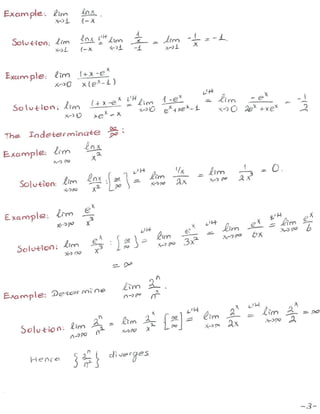 Example: lim x→1 lnx / 1-x .
Solution: lim x→1 lnx / 1-x L'H = lim x→1 1/x / -1 = lim x→1 -1/x = -1.
Example: lim x→0 1+x-e^x / x(e^x-1)
Solution: lim x→0 1+x-e^x / xe^x-x L'H = lim x→0 1-e^x / e^x+xe^x-1 L'H = lim x→0 -e^x / 2e^x+xe^x = -1/2
The Indeterminate ∞/∞ :
Example: lim x→∞ lnx / x^2
Solution: lim x→∞ lnx / x^2 : [∞/∞] L'H = lim x→∞ 1/x / 2x = lim x→∞ 1 / 2x^2 = 0.
Example: lim x→∞ e^x / x^3
Solution: lim x→∞ e^x / x^3 : [∞/∞] L'H = lim x→∞ e^x / 3x^2 L'H = lim x→∞ e^x / 6x L'H = lim x→∞ e^x / 6
= ∞
Example: Determine lim n→∞ 2^n / n^2 .
Solution: lim n→∞ 2^n / n^2 = lim x→∞ 2^x / x^2 [∞/∞] L'H = lim x→∞ 2^x / 2x L'H = lim x→∞ 2^x / 2 = ∞
Hence {2^n / n^2} diverges
-3-